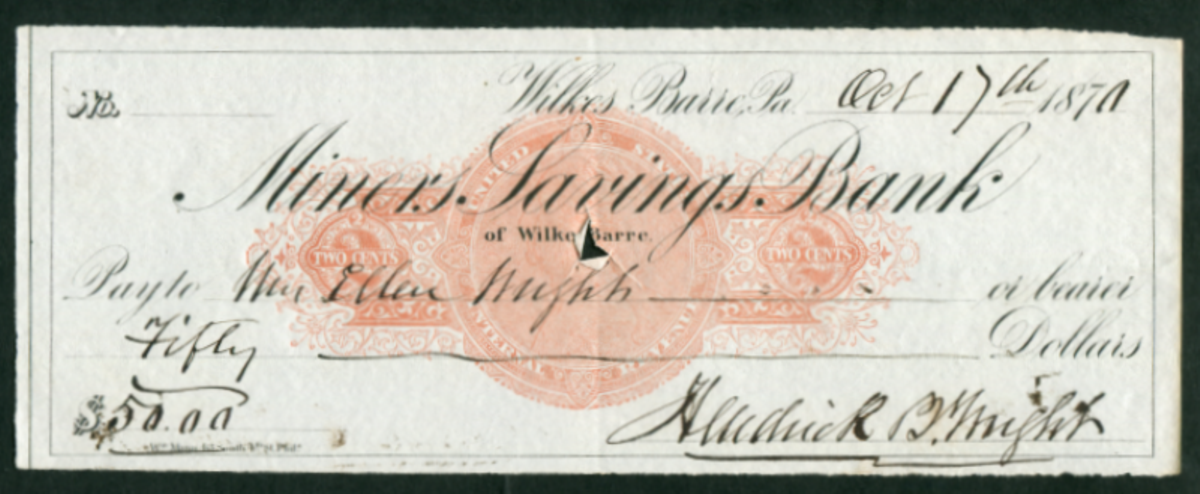 No. Wilkes Barre, Pa. Oct 17th 1870
Miners Savings Bank
of Wilkes Barre.
UNITED STATES
INTERNAL REVENUE
TWO CENTS TWO CENTS
Pay to Ellen Wright or bearer
Fifty Dollars
$50.00
Hendrick B. Wright